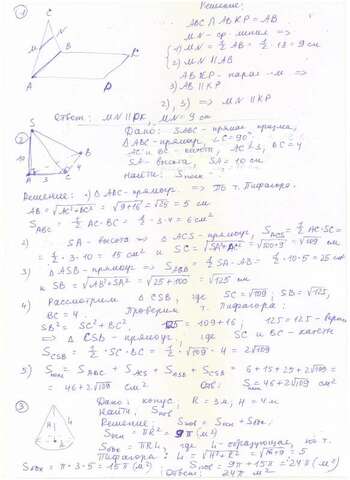 ① Решение:
ABC ∩ ABKP = AB
MN - ср. линия =>
1) MN = 1/2 AB = 1/2 · 18 = 9 см
2) MN || AB
ABKP - парал-м =>
3) AB || KP
2), 3) => MN || KP
Ответ: MN || PK, MN = 9 см
② Дано: SABC - прямая призма,
△ABC - прямоуг, ∠C = 90°,
AC и BC - катеты, AC = 3, BC = 4
SA - высота, SA = 10 см
Найти: Sполн
Решение: 1) △ABC - прямоуг. => По т. Пифагора:
AB = √AC²+BC² = √9+16 = √25 = 5 см
SABC = 1/2 AC·BC = 1/2 · 3 · 4 = 6 см²
2) SA - высота => △ACS - прямоуг, SACS = 1/2 AC·SC =
= 1/2 · 3 · 10 = 15 см² и SC = √SA²+AC² = √100+9 = √109 см
3) △ASB - прямоуг => SASB = 1/2 SA·AB = 1/2 · 10 · 5 = 25 см²
и SB = √AB²+SA² = √25+100 = √125 см
4) Рассмотрим △CSB, где SC = √109; SB = √125,
BC = 4. Проверим т. Пифагора:
SB² = SC² + BC², 125 = 109+16, 125 = 125 - верно
=> △CSB - прямоуг, где SC и BC - катеты
SCSB = 1/2 · SC · BC = 1/2 · √109 · 4 = 2√109
5) Sполн = SABC + SACS + SASB + SCSB = 6+15+25+2√109 =
= 46+2√109 см² Отв: Sп = 46+2√109 см²
③ Дано: конус, R = 3м, H = 4м
Найти: Sпов
Решение: Sпов = Sосн + Sбок;
Sосн = πR² = 9π (м²)
Sбок = πRL, где L - образующая, по т.
Пифагора: L = √H²+R² = √16+9 = 5
Sбок = π·3·5 = 15π (м²) Sпов = 9π + 15π = 24π (м²)
Ответ: 24π м²